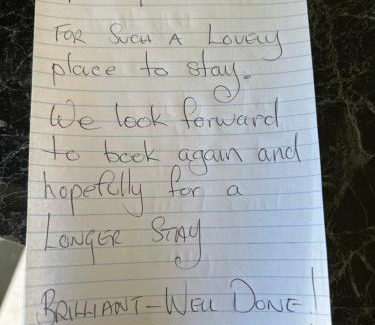 FOR SUCH A LOVELY
place to stay.
We look forward
to book again and
hopefully for a
LONGER STAY
BRILLIANT - WELL DONE!